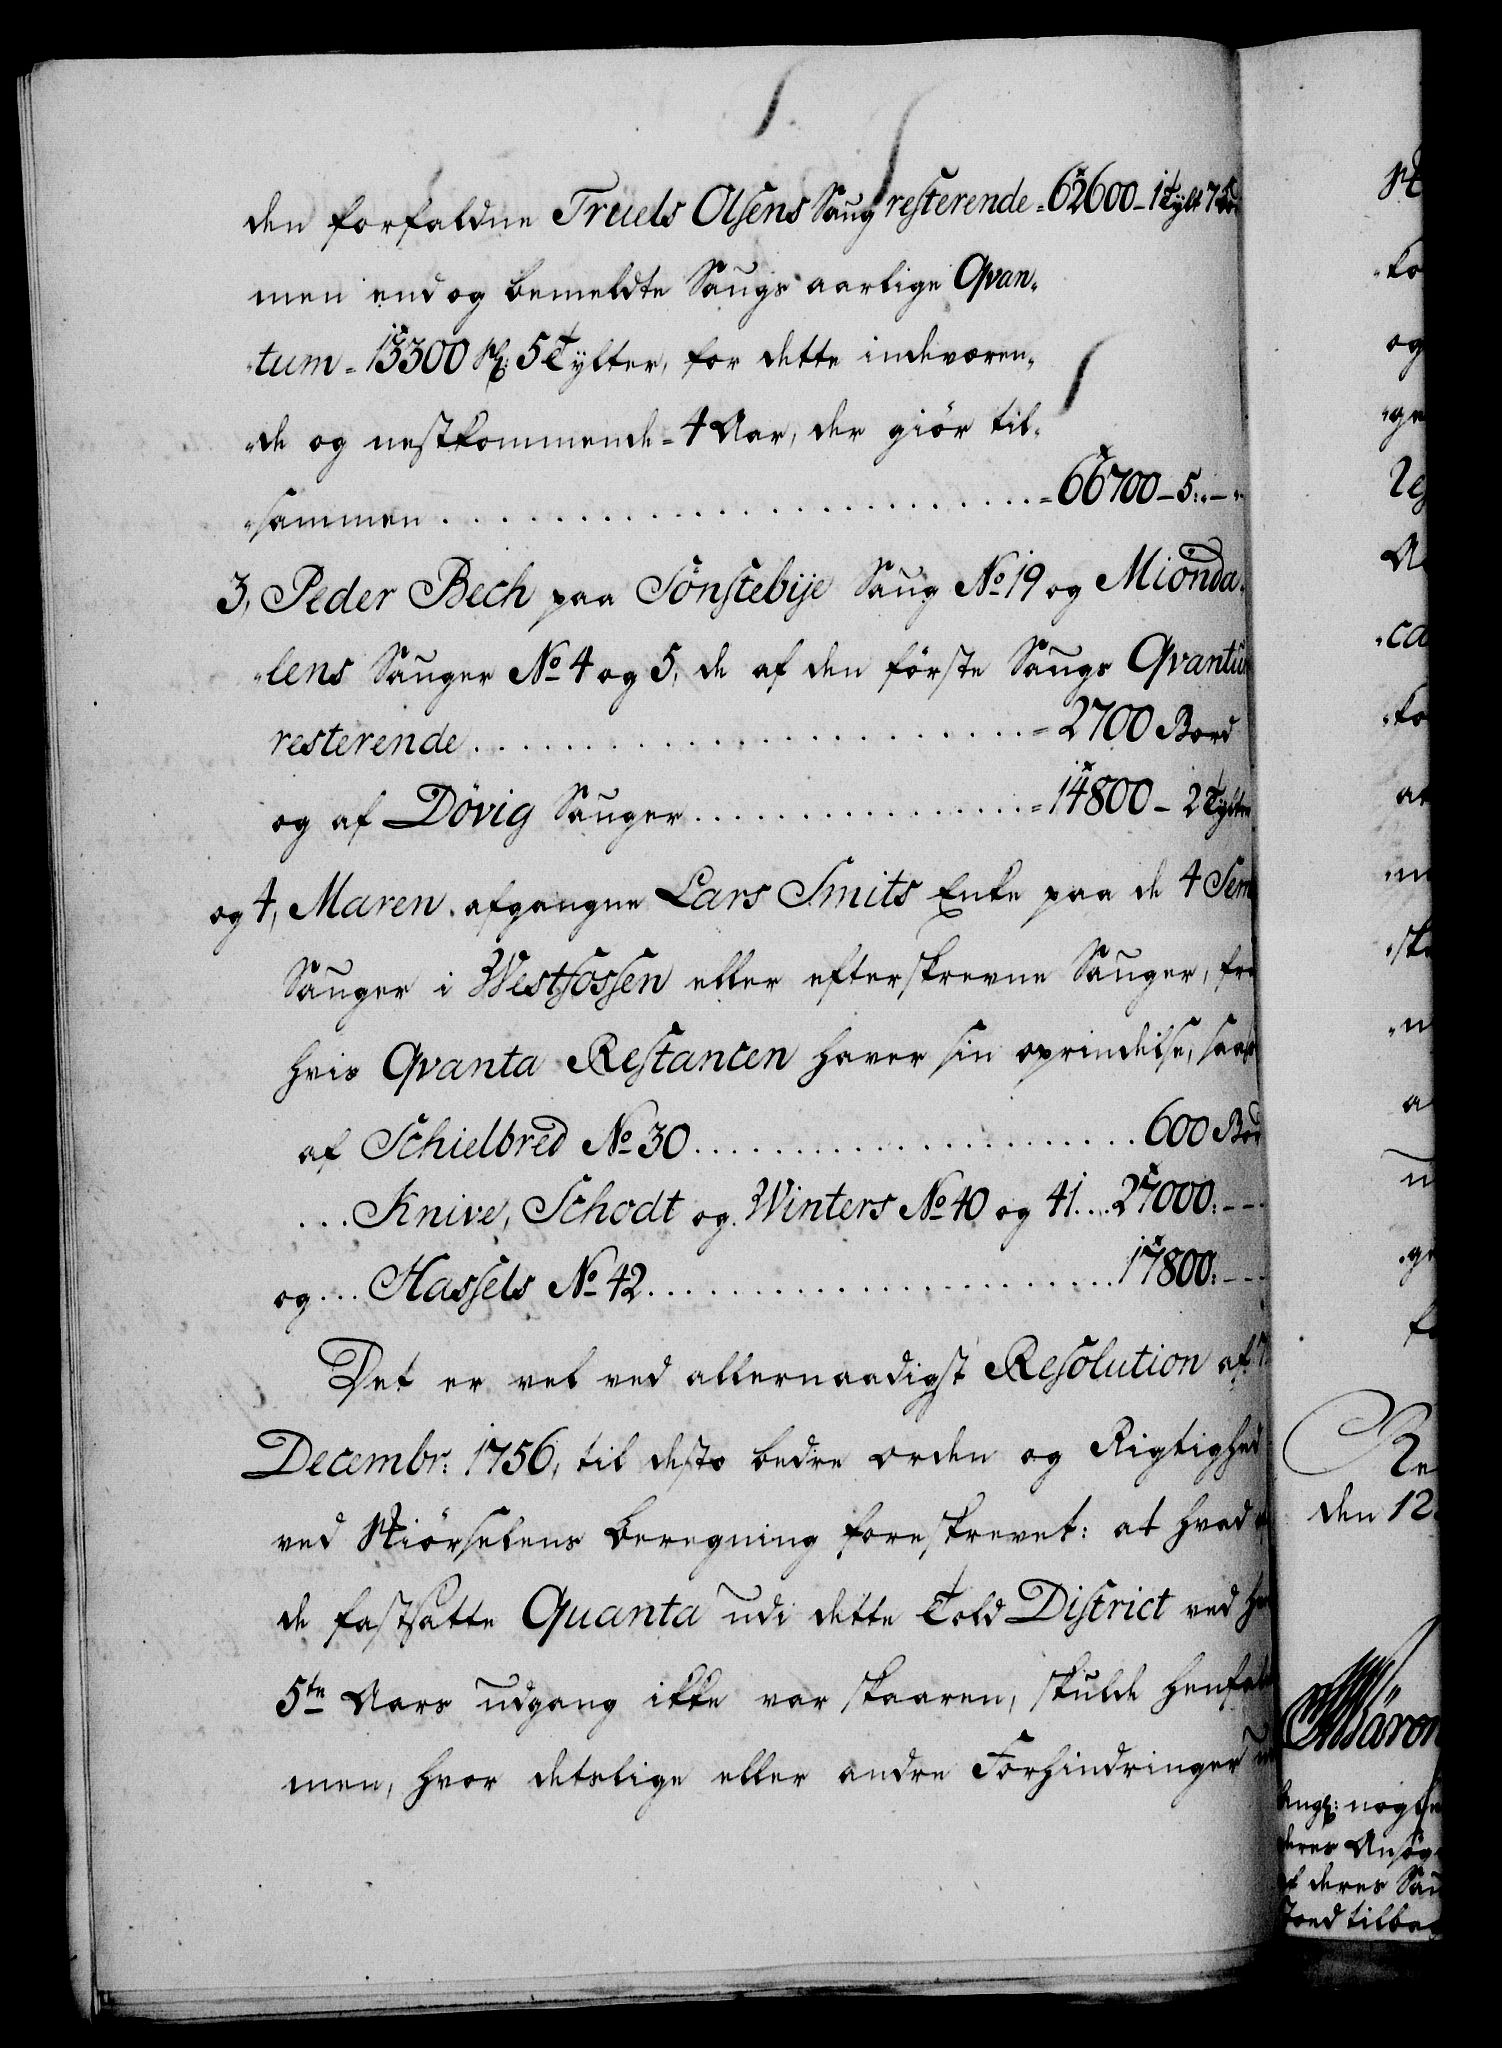 den forfaldne Truels Olsens Saug resterende = 62600 – 1 Tylt 7
men end og bemeldte Saugs aarlige Qvan-
tum = 13300 St: 5 Tylter, for dette indeværen-
de og nestkommende = 4 Aar, der giör til-
sammen . . . = 66700 – 5: –
3, Peder Bech paa Sönstebÿe Saug No 19 og Miönda-
lens Sauger No 4 og 5, de af den förste Saugs
resterende . . . = 2700 Bord
og af Dövig Sauger . . . = 14800 – 2 Tylter
og 4, Maren afgangne Lars Smits Enke paa de 4
Sauger i Westfossen eller efterskrevne Sauger, fra
hvis Qvanta Restancen haver sin oprindelse,
af Schielbred No 30 . . . 600 Bord
. . . Knive, Schodt og Winters No 40 og 41 . . . 27000: – –
og . . . Hassels No 42 . . . 17800: – –
Det er vel ved allernaadigst Resolution af
Decembr: 1756, til desto bedre orden og Rigtighed
ved Kiörselens beregning foreskrevet: at hvad
de fastsatte Quanta udi dette Told District ved
5te Aars udgang ikke var skaaren, skulde
men, hvor deslige eller andre Forhindringer
den 12